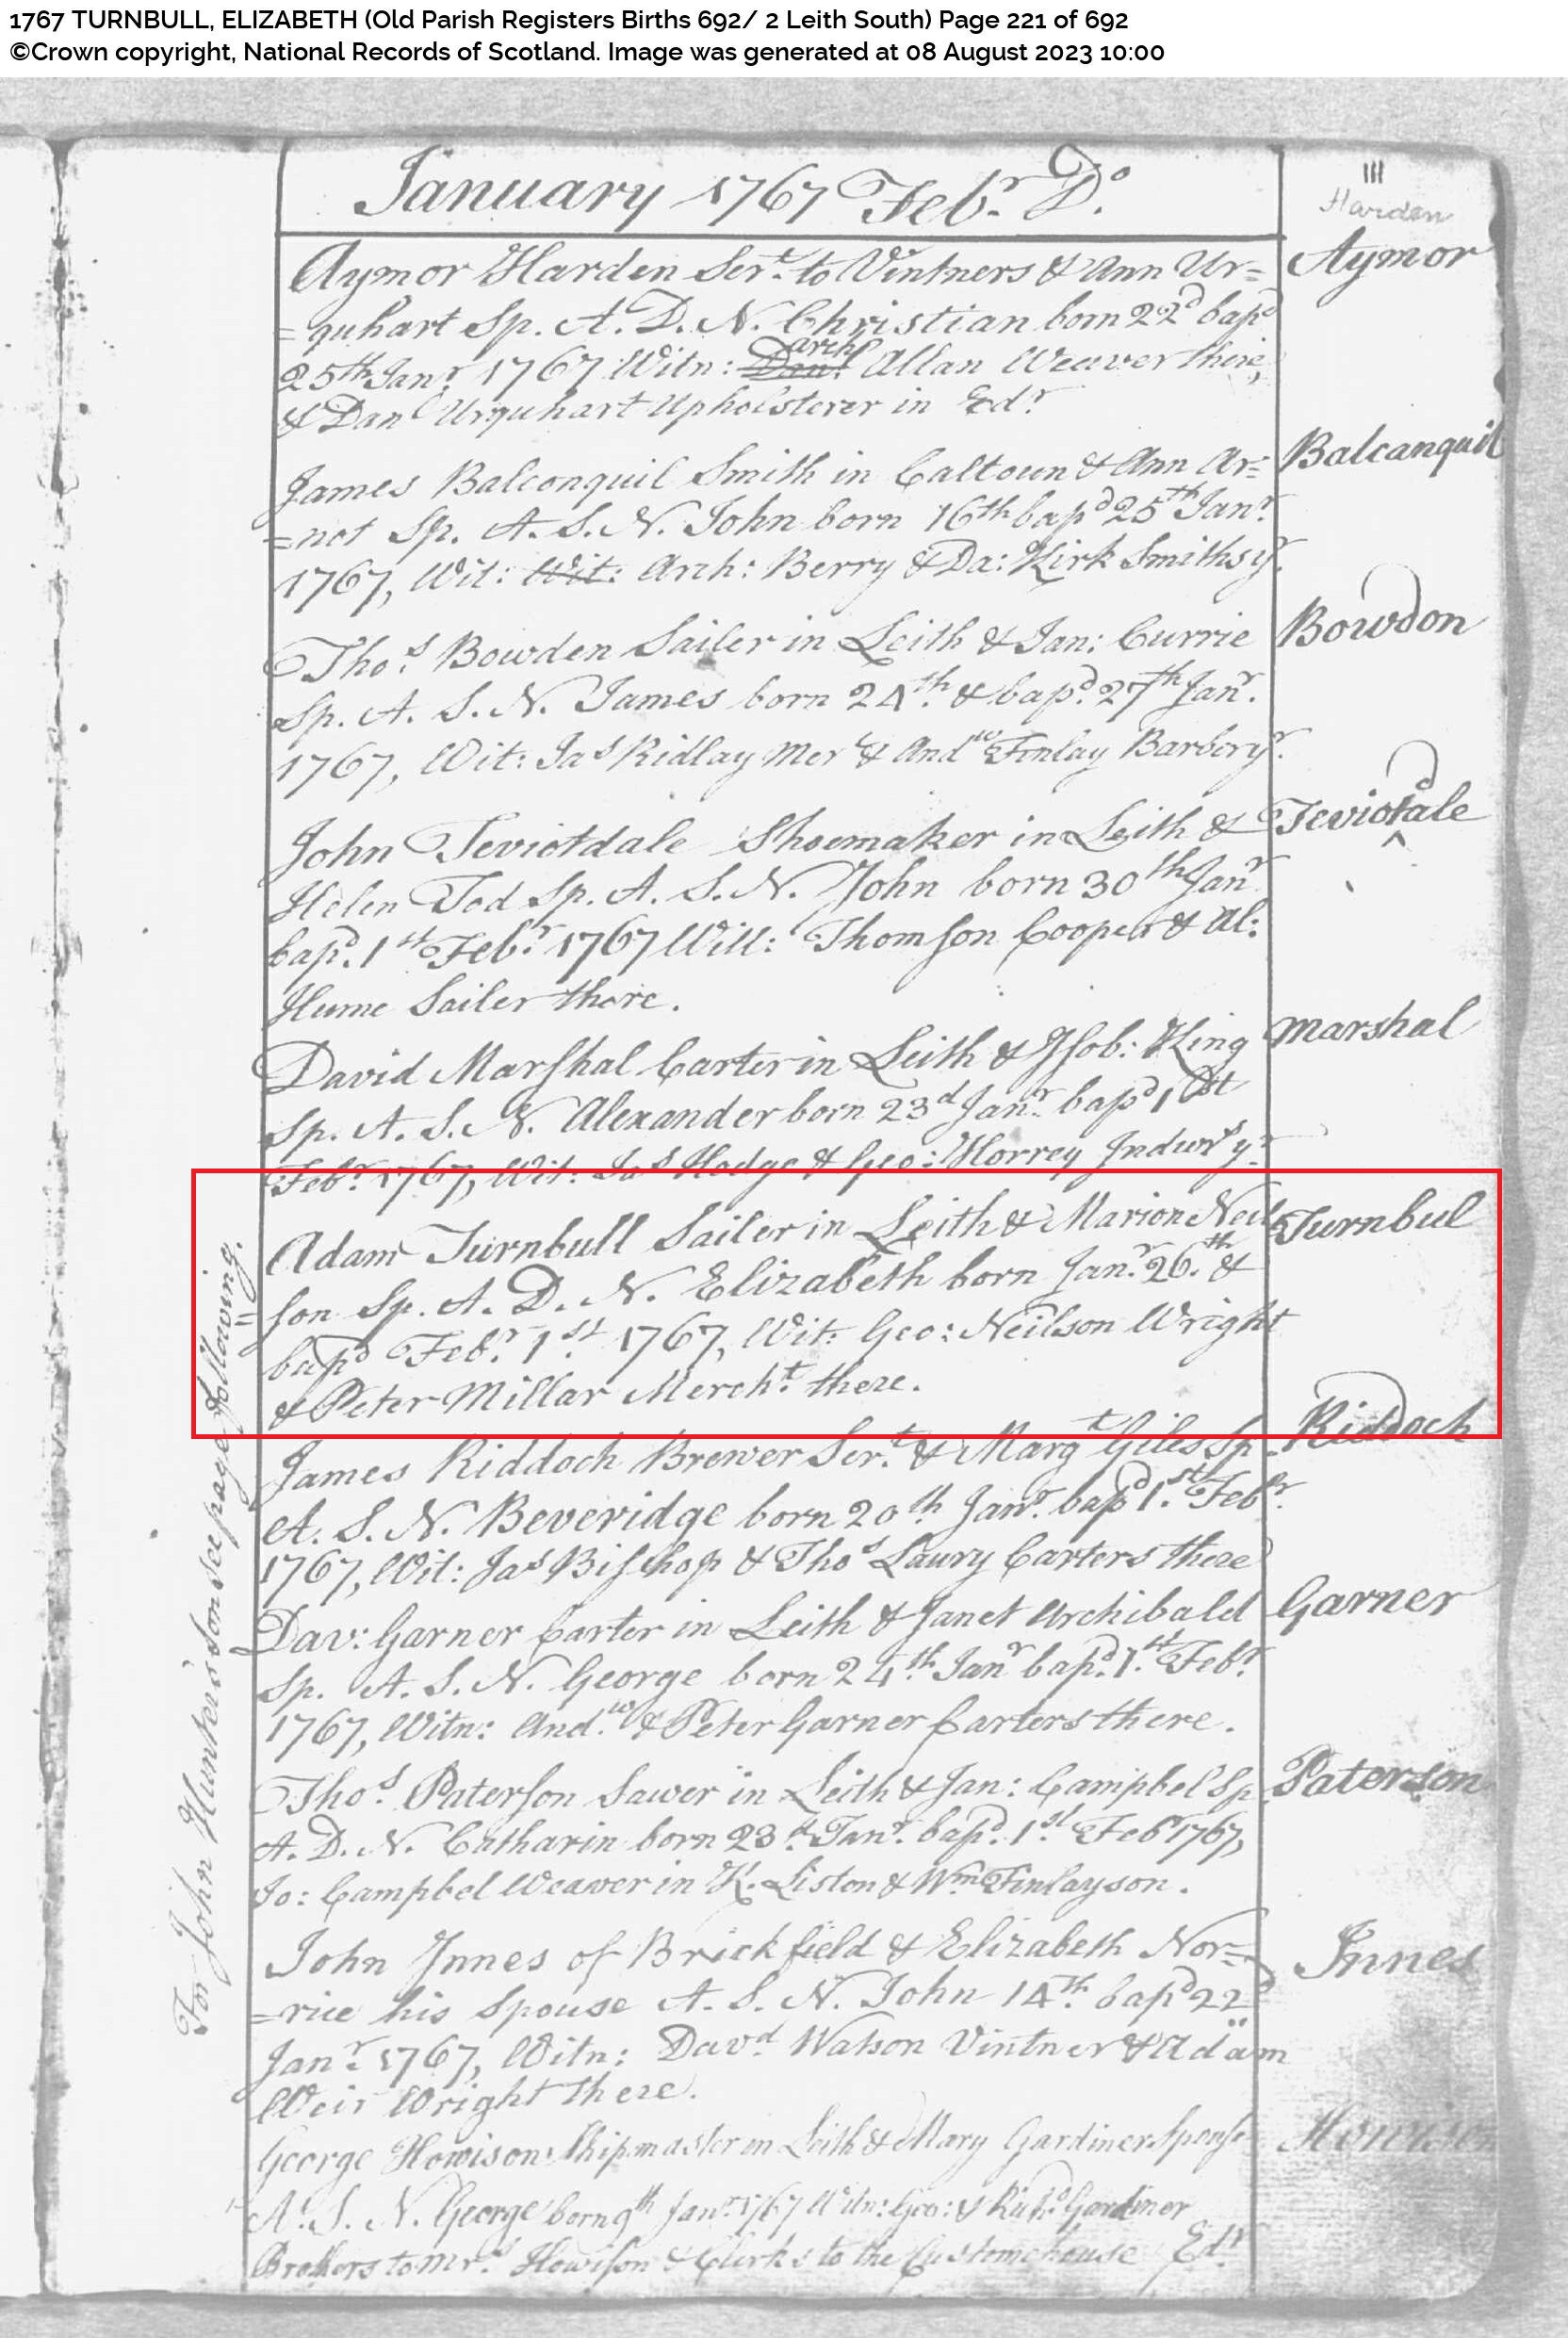 1767 TURNBULL, ELIZABETH (Old Parish Registers Births 692/ 2 Leith South) Page 221 of 692
©Crown copyright, National Records of Scotland. Image was generated at 08 August 2023 10:00
January 1767 Febr. Do.
111
Harden
Aymor Harden Servt. to Vintners & Ann Ur= Aymor
=quhart Sp. A. D. N. Christian born 22d bapd
25th Janr. 1767 Witn: Danl. Archd Allan Weaver there,
& Danl Urquhart Upholsterer in Edr.
James Balconquil Smith in Caltoun & Ann Ar= Balcanquil
=not Sp. A. S. N. John born 16th bapd 25th Janr.
1767, Wit: Wit: Arch: Berry & Da: Kirk Smiths yr.
Thos. Bowden Sailer in Leith & Jan: Currie Bowdon
Sp. A. S. N. James born 24th. & bapd. 27th Janr.
1767, Wit: Jas Ridlay Mert & Andw Finlay Barber yr.
John Teviotdale Shoemaker in Leith & Teviotdale
Helen Tod Sp. A. S. N. John born 30th Janr
bapd. 1st Febr. 1767 Will: Thomson Cooper & Al:
Hume Sailer there.
David Marshal Carter in Leith & Isob: King Marshal
Sp. A. S. N. Alexander born 23d Janr. bapd 1st
Febr. 1767, Wit: Jas Hodge & Geo: Horrey Indwrs yr
Adam Turnbull Sailer in Leith & Marion Neil= Turnbul
son Sp. A. D. N. Elizabeth born Janr. 26th. &
bapd Febr. 1st. 1767, Wit: Geo: Neilson Wright
& Peter Millar Mercht. there.
James Riddoch Brewer Servt. & Margt Giles Sp. Riddoch
A. S. N. Beveridge born 20th Janr. bapd 1st. Febr.
1767, Wit: Jas Bishop & Thos Laury Carters there
Dav: Garner Carter in Leith & Janet Archibald Garner
Sp. A. S. N. George born 24th Janr bapd. 1st. Febr.
1767, Witn: Andw. & Peter Garner Carters there.
Thos. Paterson Sawer in Leith & Jan: Campbel Sp. Paterson
A. D. N. Catharin born 23d Janr. bapd. 1st. Febr 1767,
Jo: Campbel Weaver in K. Liston & Wm Finlayson.
John Innes of Brickfield & Elizabeth Nor= Innes
=rice his Spouse A. S. N. John 14th. bapd 22d
Janr. 1767, Witn: Davd. Watson Vintner & Adam
Weir Wright there.
George Howison Shipmaster in Leith & Mary Gardiner Spouse Howison
A. S. N. George born 9th Janr. 1767 Witn: Geo: & Richd. Gardiner
Brothers to Mrs. Howison & Clerks to the Customehouse Edr.
For John Hunter's son see page following.